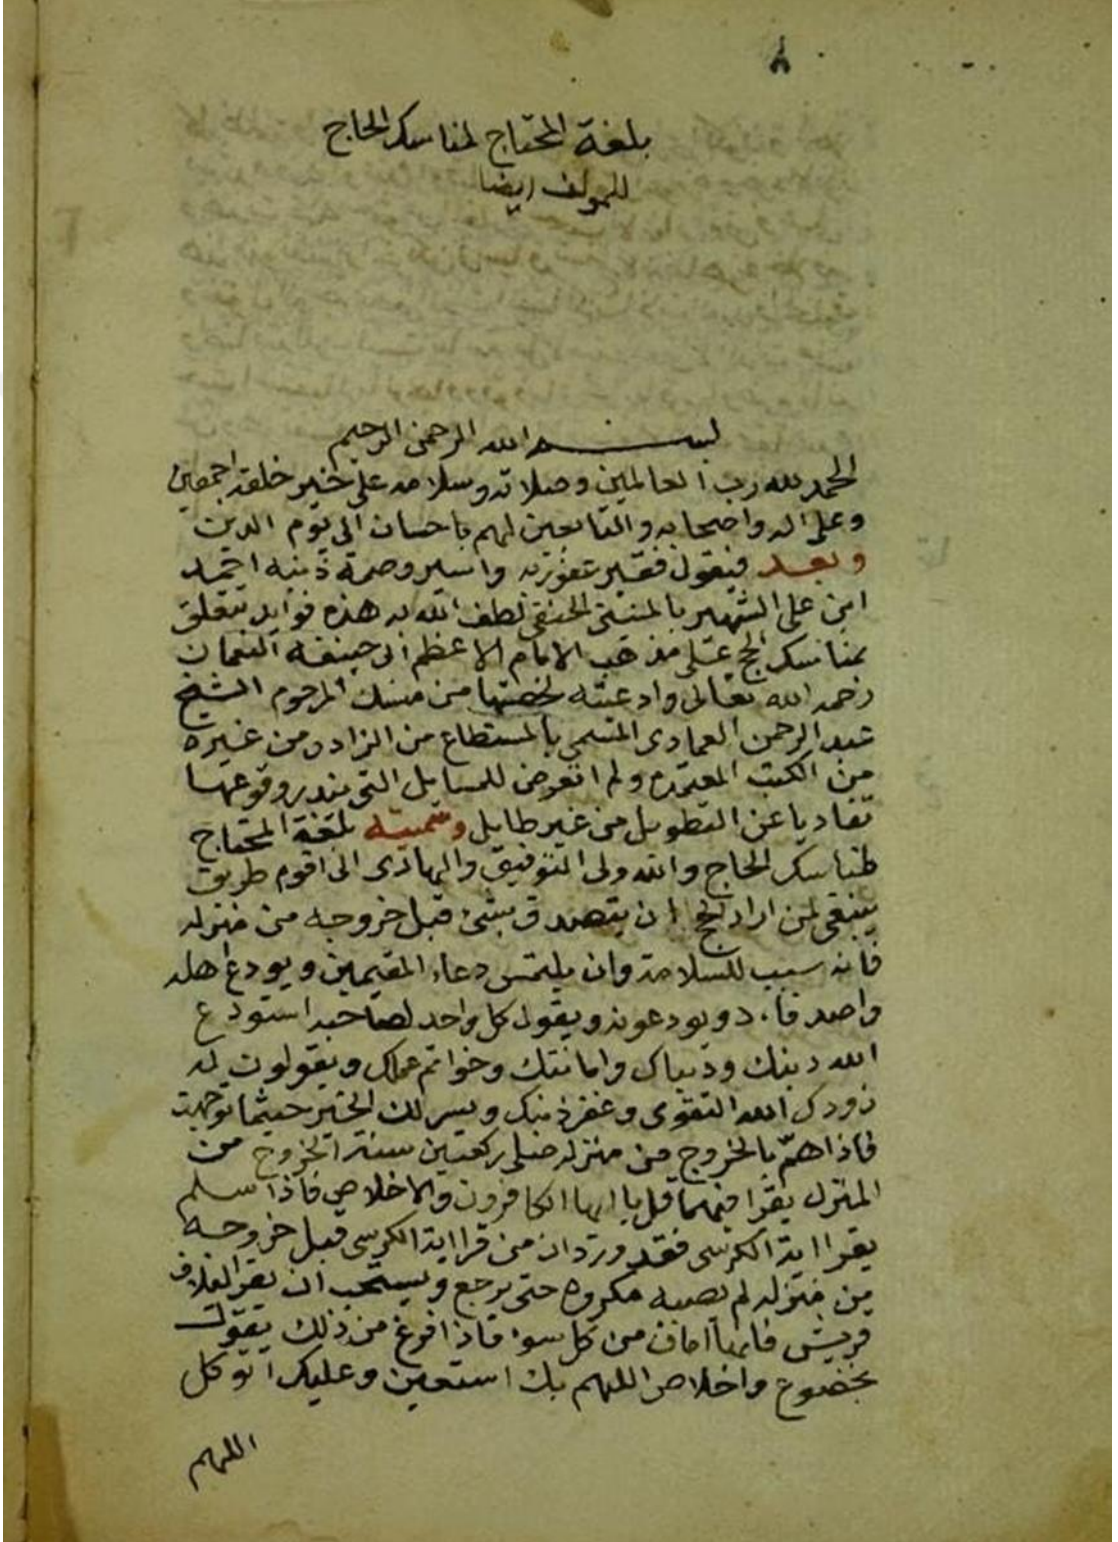 ٨
بلغة المحتاج لمناسك الحاج
للمولف ايضا
بسم الله الرحمن الرحيم
الحمد لله رب العالمين وصلاته وسلامه على خير خلقه اجمعين
وعلى اله واصحابه والتابعين لهم باحسان الى يوم الدين
وبعد فيقول فقير عفو ربه واسير وصمة ذنبه احمد
ابن على الشهير بالمنينى الحنفى لطف الله به هذه فوايد تتعلق
بمناسك الحج على مذهب الامام الاعظم ابى حنيفة النعمان
رحمه الله تعالى وادعيته لخصتها من منسك المرحوم الشيخ
عبد الرحمن العمادى المسمى بالمستطاع من الزاد ومن غيره
من الكتب المعتمدة ولم اتعرض للمسايل التى يندر وقوعها
تفاديا عن التطويل من غير طايل وسميته بلغة المحتاج
لمناسك الحاج والله ولى التوفيق والهادى الى اقوم طريق
ينبغى لمن اراد الحج ان يتصدق بشئ قبل خروجه من منزله
فانه سبب للسلامة وان يلتمس دعاء المقيمين ويودع اهله
واصدقاءه ويودعونه ويقول كل واحد لصاحبه استودع
الله دينك ودنياك وامانتك وخواتم عملك ويقولون له
زودك الله التقوى وغفر ذنبك ويسر لك الخير حيثما توجهت
فاذا هم بالخروج من منزله صلى ركعتين سنة الخروج من
المنزل يقرا فيهما قل يا ايها الكافرون والاخلاص فاذا سلم
يقرا اية الكرسى فقد ورد ان من قرا اية الكرسى قبل خروجه
من منزله لم يصبه مكروه حتى يرجع ويستحب ان يقرا لايلاف
قريش فانها امان من كل سوء فاذا فرغ من ذلك يقول
بخضوع واخلاص اللهم بك استعين وعليك اتوكل
اللهم